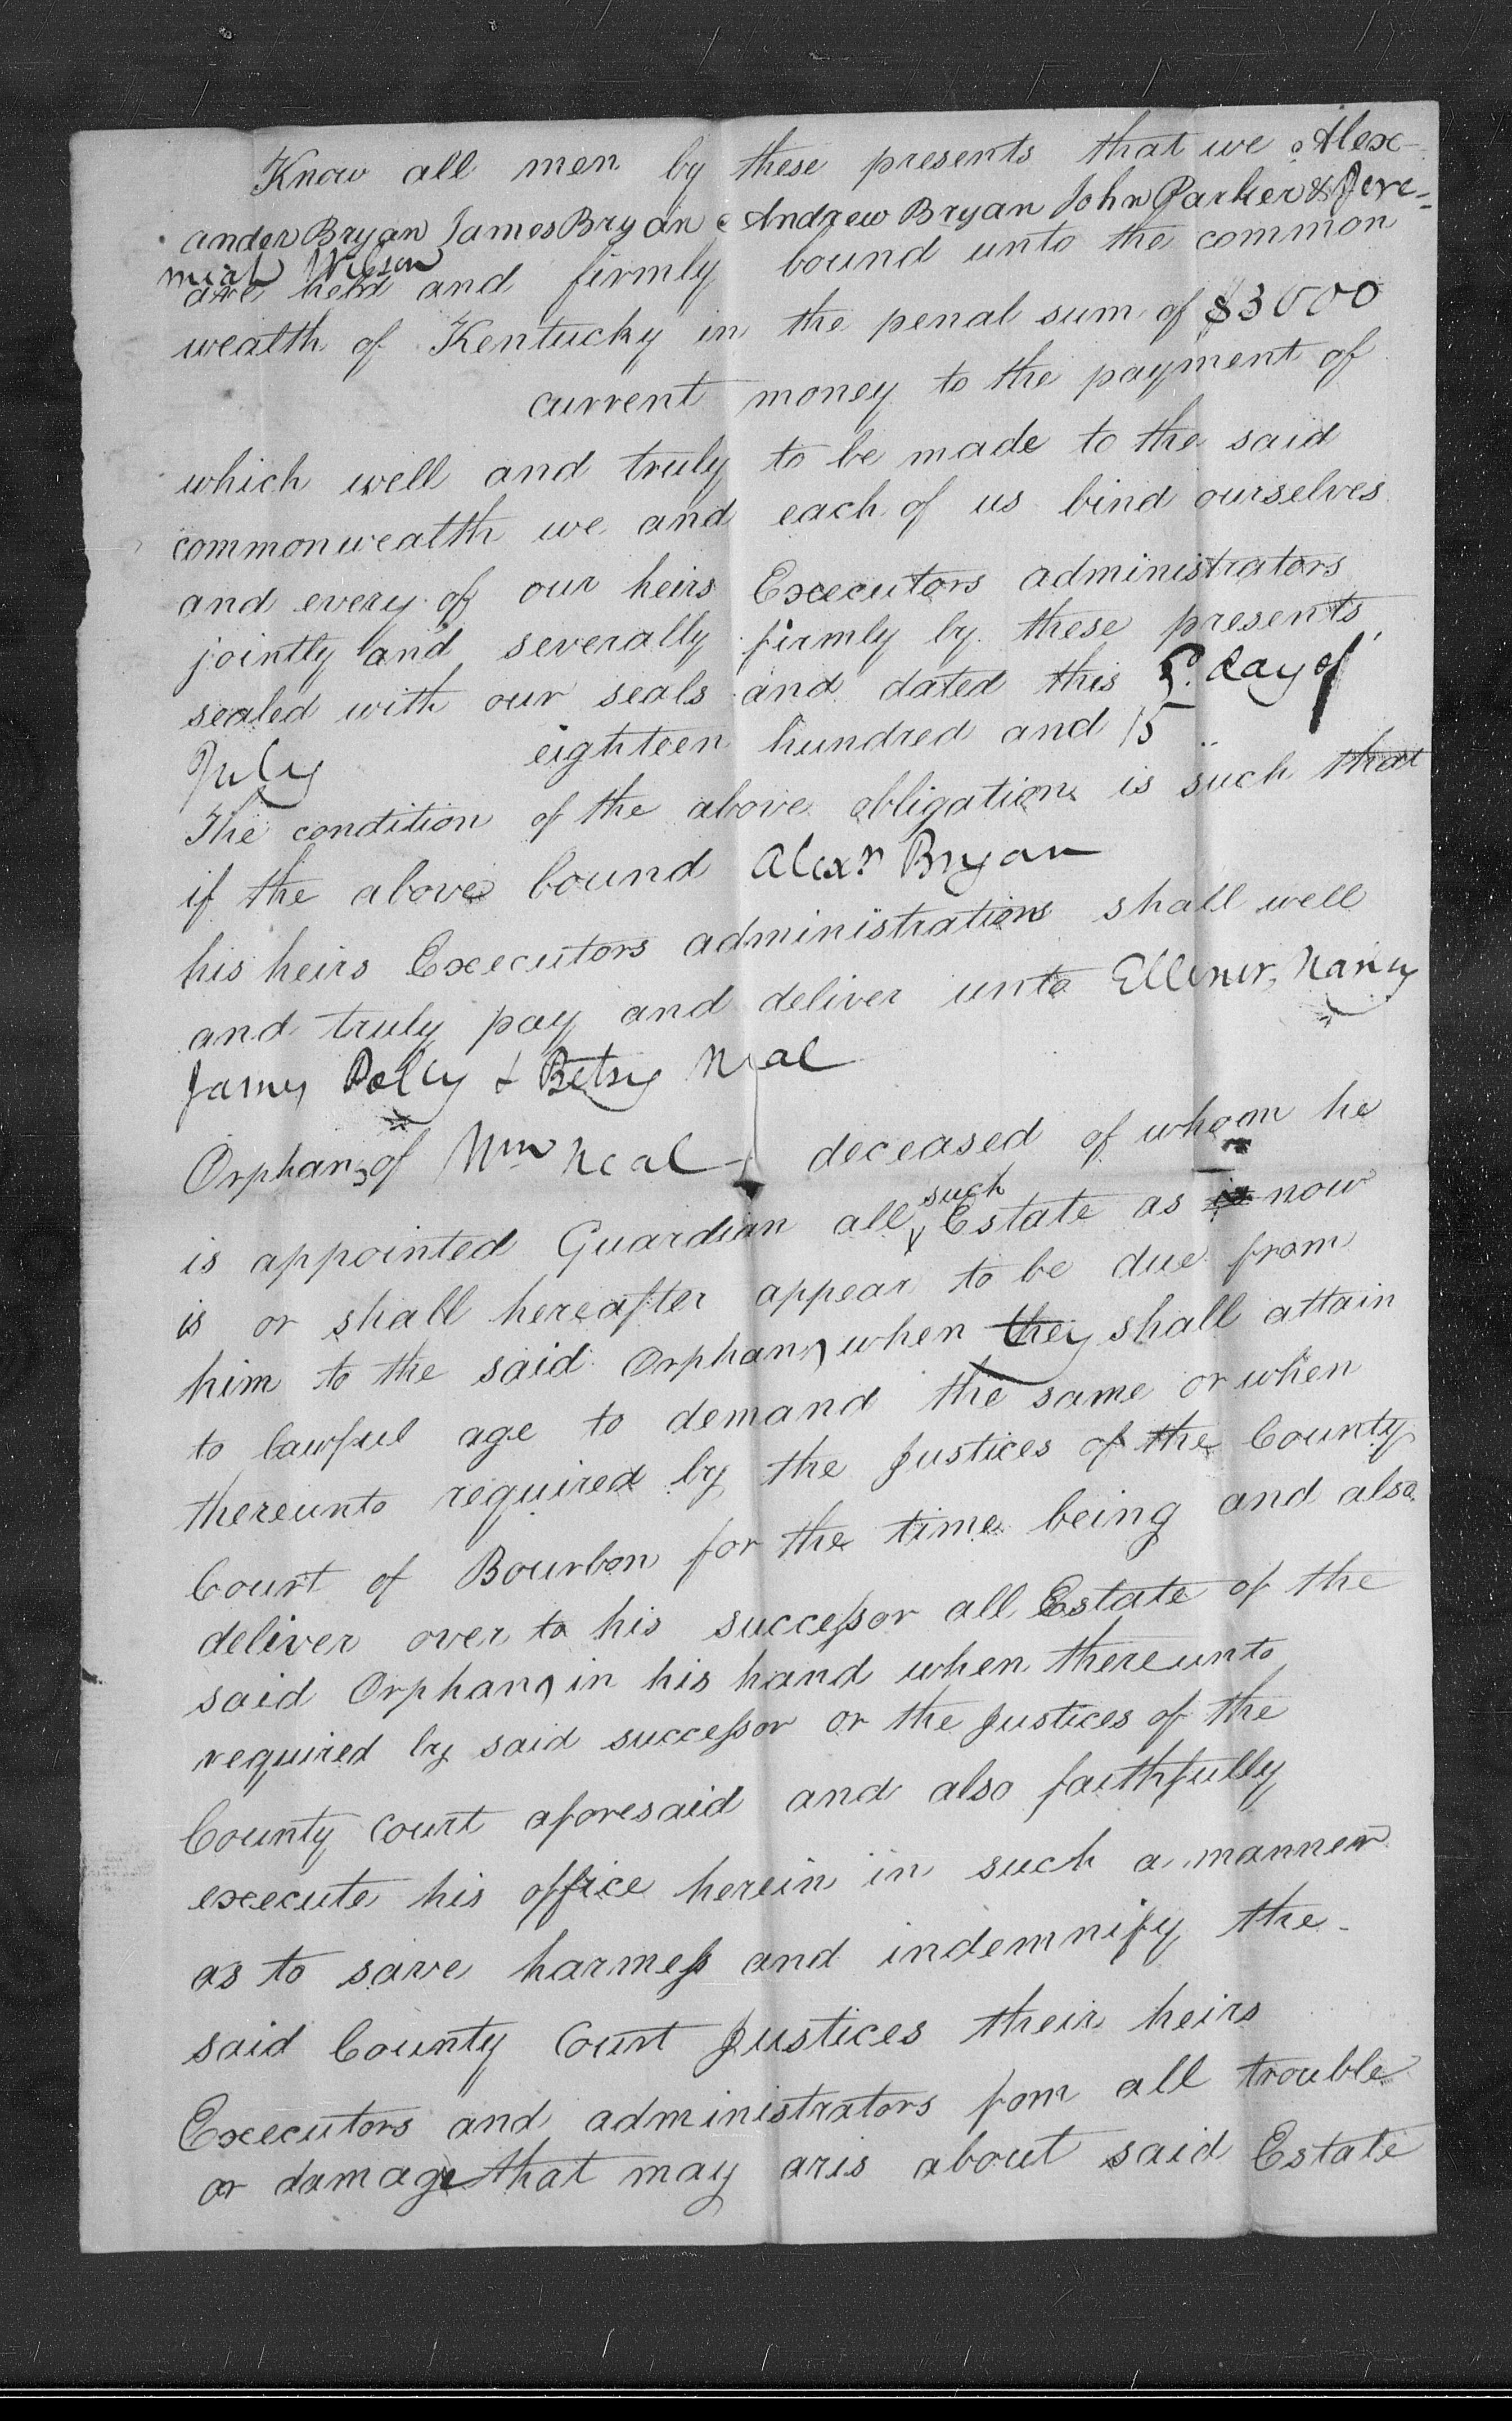 Know all men by these presents that we Alex-
ander Bryan James Bryan Andrew Bryan John Parker & Jere=
miah Wilson
are held and firmly bound unto the common
wealth of Kentucky in the penal sum of $3000
current money to the payment of
which well and truly to be made to the said
commonwealth we and each of us bind ourselves
and every of our heirs Executors administrators
jointly and severally firmly by these presents
sealed with our seals and dated this 5. day of
July eighteen hundred and 15
The condition of the above obligation is such that
if the above bound Alexr Bryan
his heirs Executors administrations shall well
and truly pay and deliver unto Ellenor, Nancy
James Polly & Betsy Neal
Orphans of Wm Neal deceased of whom he
such
is appointed Guardian all Estate as is now
is or shall hereafter appear to be due from
him to the said Orphans when they shall attain
to lawful age to demand the same or when
thereunto required by the Justices of the County
Court of Bourbon for the time being and also
deliver over to his successor all Estate of the
said Orphans in his hand when thereunto
required by said successor or the Justices of the
County court aforesaid and also faithfully
execute his office herein in such a manner
as to save harmess and indemnify the
said County Court Justices their heirs
Executors and administrators fom all trouble
or damage that may aris about said Estate